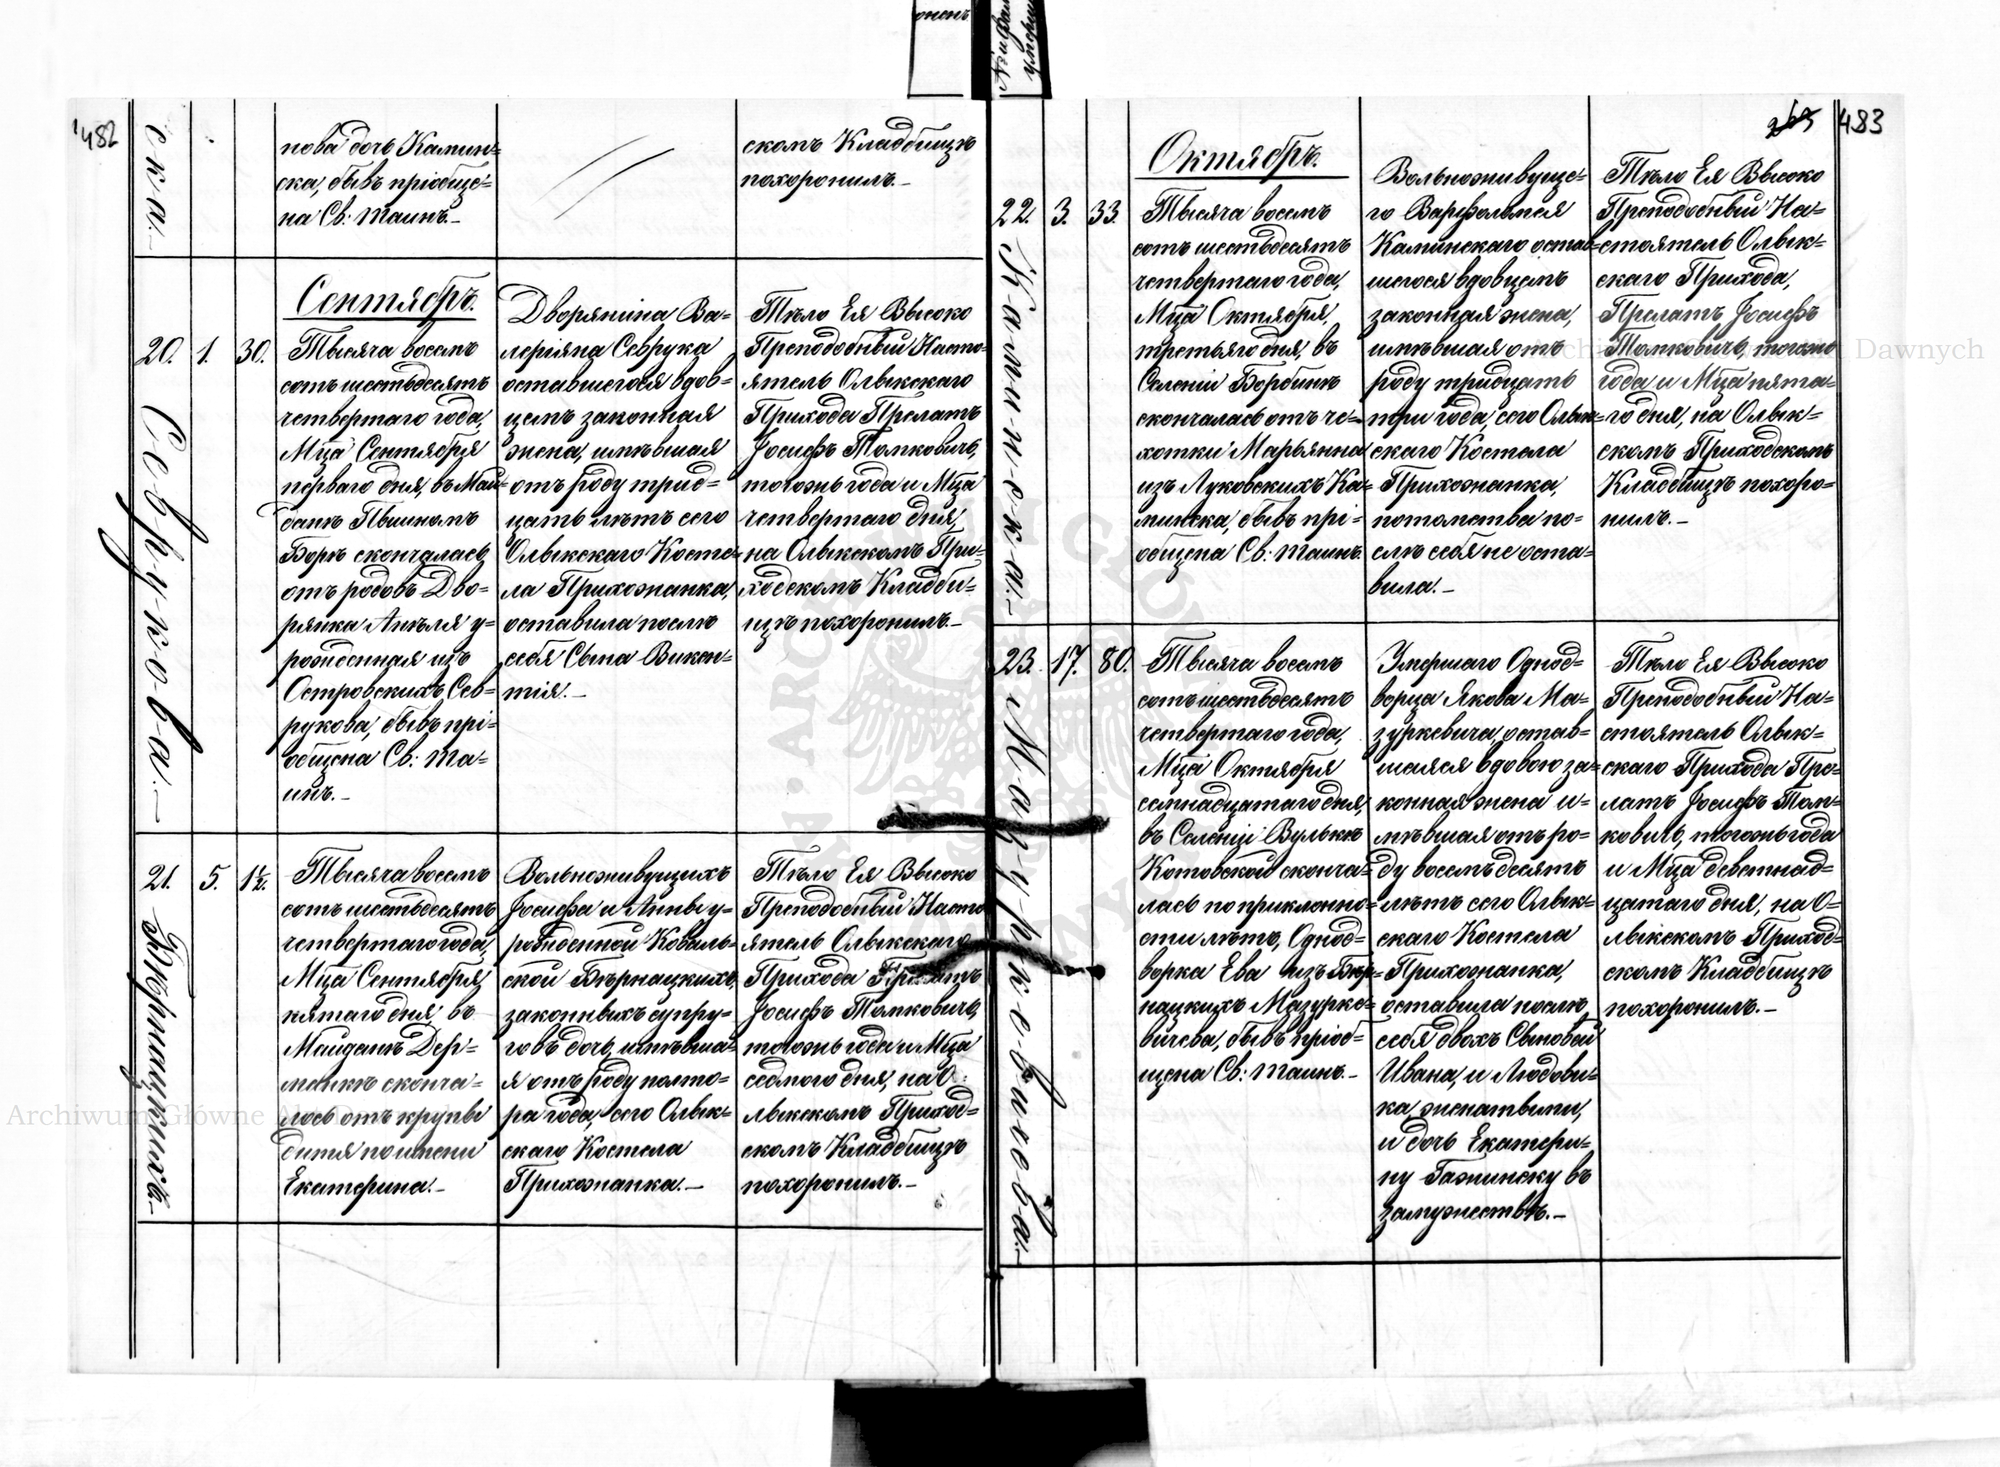 482
ска.—
нова дочь Камин=
ска, бывъ пріобще=
на Св: таинъ.—
скомъ Кладбищѣ
похоронилъ.—
Сентябрь.
20.
1.
30.
Севрукова.—
Тысяча восемъ
сотъ шестьдесятъ
четвертаго года,
Мца Сентября
перваго дня, въ Май=
данѣ Пвшномъ
Борѣ скончалась
отъ родовъ Дво=
рянка Анѣля у=
рожденная изъ
Островскихъ Сев=
рукова, бывъ прі=
общена Св: та=
инъ.—
Дворянина Ва=
леріяна Севрука
оставшегося вдов=
цемъ законная
жена, имѣвшая
отъ роду трид=
цать лѣтъ сего
Олыкскаго Косте=
ла Прихожанка,
оставила послѣ
себя Сына Викен=
тія.—
Тѣло Ея Высоко
Преподобный Насто=
ятель Олыкскаго
Прихода Прелатъ
Іосифъ Томковичъ,
тогожъ года и Мца
четвертаго дня,
на Олыкскомъ При=
ходскомъ Кладби=
щѣ похоронилъ.—
21.
5.
1½.
Бѣрнацкихъ.—
Тысяча восемъ
сотъ шестьдесятъ
четвертаго года,
Мца Сентября
пятаго дня, въ
Майданѣ Дер=
манкѣ сконча=
лось отъ крупы
дитя по имени
Екатерина.—
Вольноживущихъ
Іосифа и Анны у=
рожденной Коваль=
ской Бѣрнацкихъ,
законныхъ супру=
говъ дочь, имѣвша=
я отъ роду полто=
ра года, сего Олык=
скаго Костела
Прихожанка.—
Тѣло Ея Высоко
Преподобный Насто
ятель Олыкскаго
Прихода Прелатъ
Іосифъ Томковичъ,
тогожъ года и Мца
седмого дня, на О=
лыкскомъ Приход=
скомъ Кладбищѣ
похоронилъ.—
483
Октябрь.
22.
3.
33.
Каминска.—
Тысяча восемъ
сотъ шестьдесятъ
четвертаго года,
Мца Октября,
третьяго дня, въ
Селеніи Борбинѣ
скончалась отъ че=
хотки Марьянна
изъ Луковскихъ Ка=
минска, бывъ прі=
общена Св: таинъ.
Вольноживуще=
го Варфоломея
Каминскаго остав=
шегося вдовцемъ
законная жена,
имѣвшая отъ
роду тридцать
три года, сего Олык=
скаго Костела
Прихожанка,
потомства по=
слѣ себя не оста=
вила.—
Тѣло Ея Высоко
Преподобный На=
стоятель Олык=
скаго Прихода,
Прелатъ Іосифъ
Томковичъ, тогожъ
года и Мца пята=
го дня, на Олык=
скомъ Приходскомъ
Кладбищѣ похоро=
нилъ.—
23.
17.
80.
Мазуркевичева.—
Тысяча восемъ
сотъ шестьдесятъ
четвертаго года,
Мца Октября
семнадцатаго дня,
въ Селеніи Вулькѣ
Котовской сконча=
лась по приклонно=
сти лѣтъ, Однод=
ворка Ева изъ Бѣр=
нацкихъ Мазурке=
вичева, бывъ пріоб=
щена Св: таинъ.—
Умершаго Однод=
ворца Якова Ма=
зуркевича, остав=
шаяся вдовою за=
конная жена и=
мѣвшая отъ ро=
ду восемъдесятъ
лѣтъ сего Олык=
скаго Костела
Прихожанка,
оставила послѣ
себя двохъ Сыновей
Ивана, и Людови=
ка, женатыми,
и дочь Екатери=
ну Гажинску въ
замужествѣ.—
Тѣло Ея Высоко
Преподобный На=
стоятель Олык=
скаго Прихода Пре=
латъ Іосифъ Том=
ковичъ, тогожъ года
и Мца девятнад=
цатаго дня, на О=
лыкскомъ Приход=
скомъ Кладбищѣ
похоронилъ.—